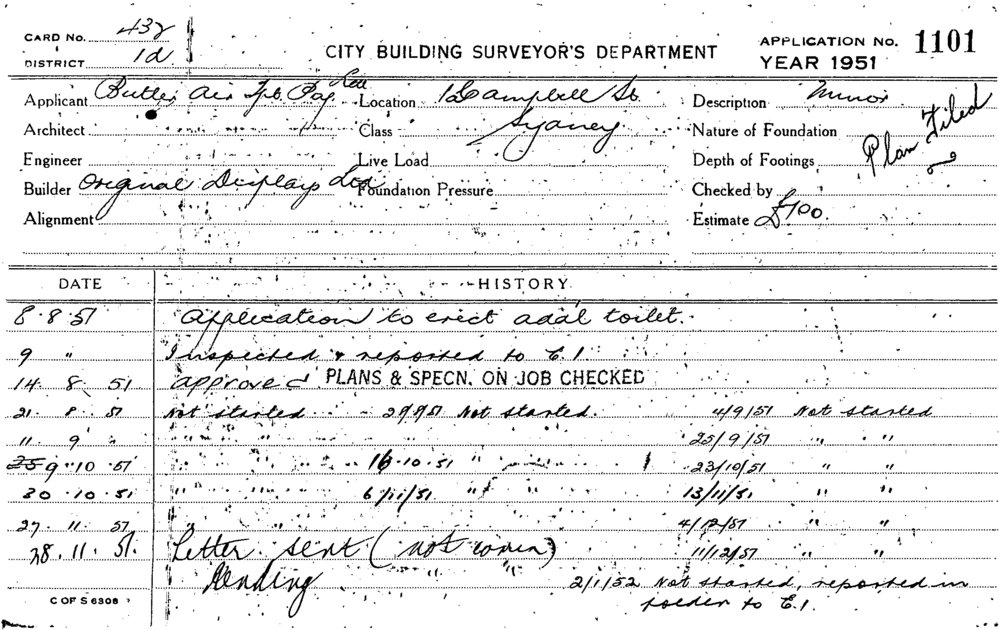 CARD No. 432
DISTRICT 1d
CITY BUILDING SURVEYOR'S DEPARTMENT
APPLICATION No. 1101
YEAR 1951
Applicant Butler Air Tpt. Pty Ltd Location Campbell St. Description Minor
Architect Class Sydney Nature of Foundation Plan Filed
Engineer Live Load Depth of Footings
Builder Original Displays Ltd Foundation Pressure Checked by
Alignment Estimate £100.
DATE HISTORY
8.8.51 Application to erect addal toilet.
9 " Inspected & reported to E.I.
14. 8. 51 approved PLANS & SPECN. ON JOB CHECKED
21 8 51 Not started 51 Not started. 4/9/51 Not started
11 9 " " " 25/9/51 " "
9.10.51 " " 16.10.51 " " 23/10/51 " "
30.10.51 " " 6/11/51 " " 13/11/51 " "
27. 11 51 " " 4/12/51 " "
28.11.51. Letter sent (not 11/12/51 " "
Pending " " 2/1/52 Not started, reported in
folder to E.I.
C OF S 6308